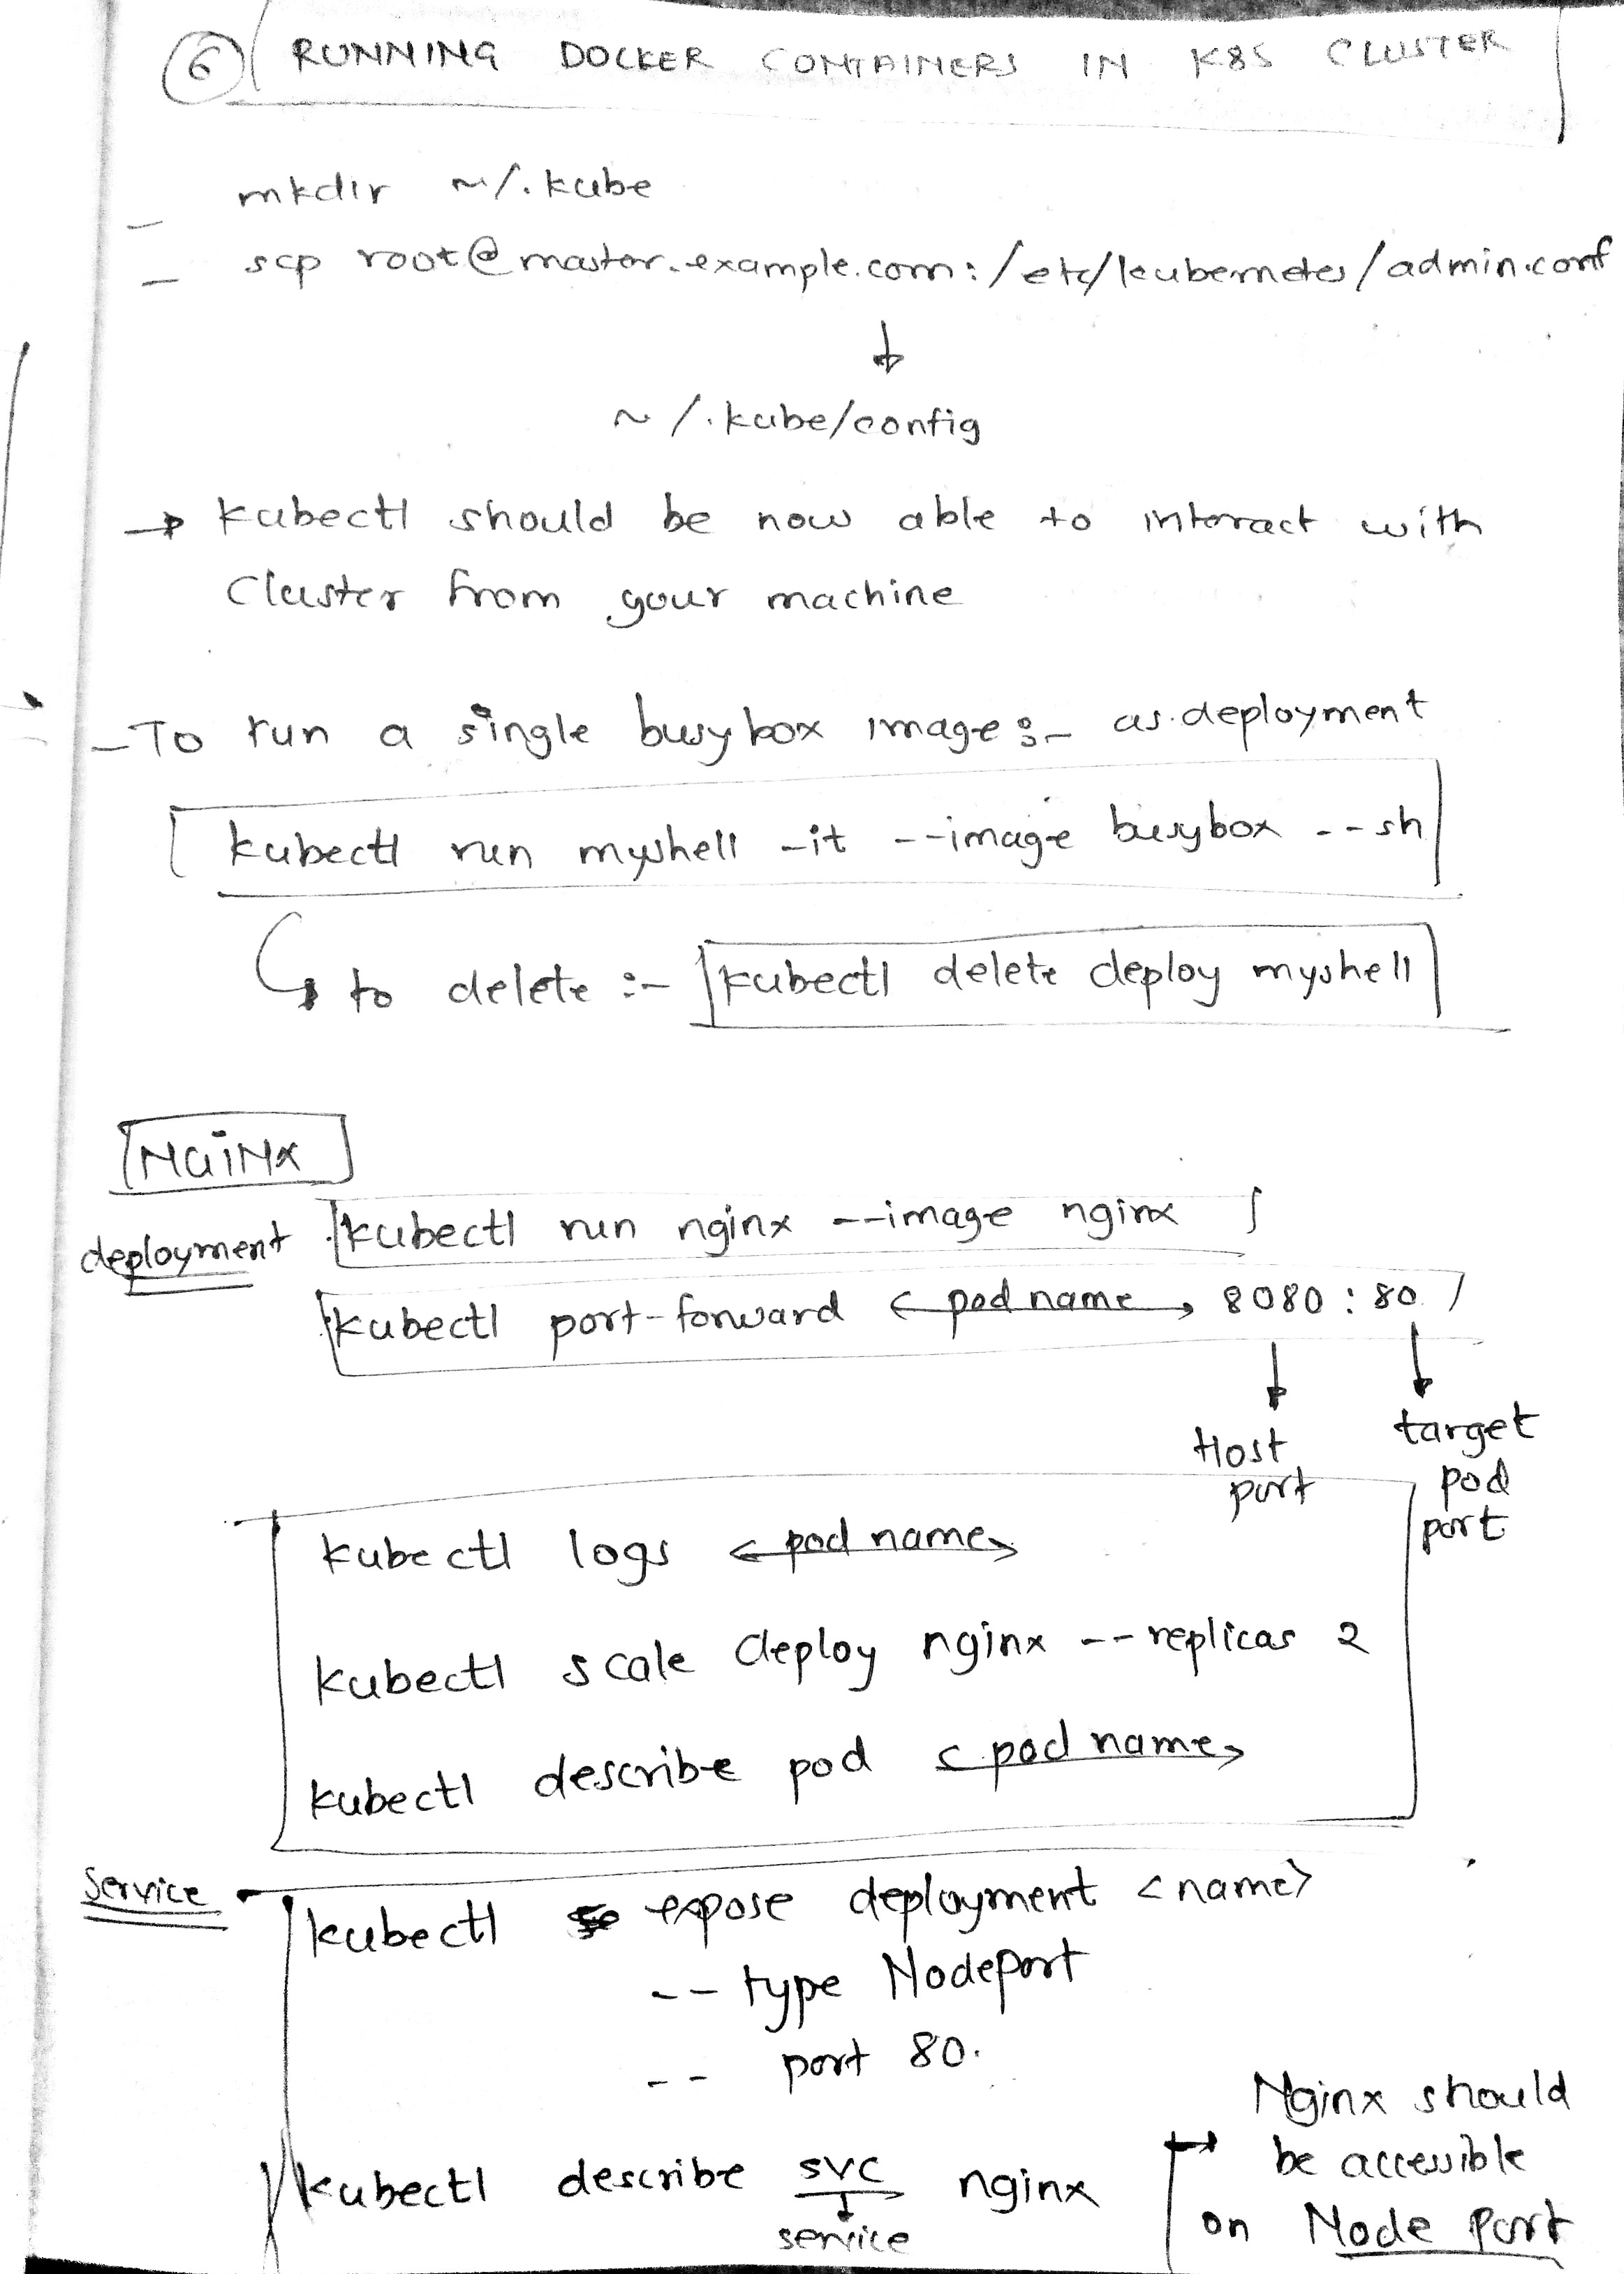 6 RUNNING DOCKER CONTAINERS IN K8S CLUSTER
- mkdir ~/.kube
- scp root@master.example.com:/etc/kubernetes/admin.conf
↓
~/.kube/config
→ kubectl should be now able to interact with
Cluster from your machine
- To run a single busybox image :- as deployment
kubectl run myshell -it --image busybox --sh
↳ to delete :- kubectl delete deploy myshell
NGiNx
deployment kubectl run nginx --image nginx
kubectl port-forward <pod name> 8080:80
↓ ↓
Host target
port pod
port
kubectl logs <pod name>
kubectl scale deploy nginx --replicas 2
kubectl describe pod <pod name>
Service kubectl expose deployment <name>
-- type NodePort
-- port 80.
kubectl describe svc nginx
↓
service
→ Nginx should
be accessible
on Node Port